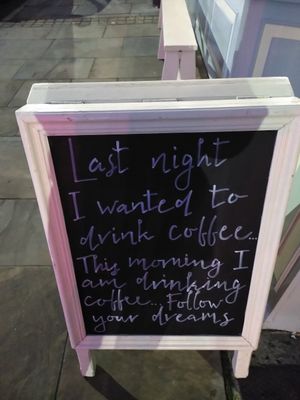 Last night
I wanted to
drink coffee...
This morning I
am drinking
coffee... Follow
your dreams